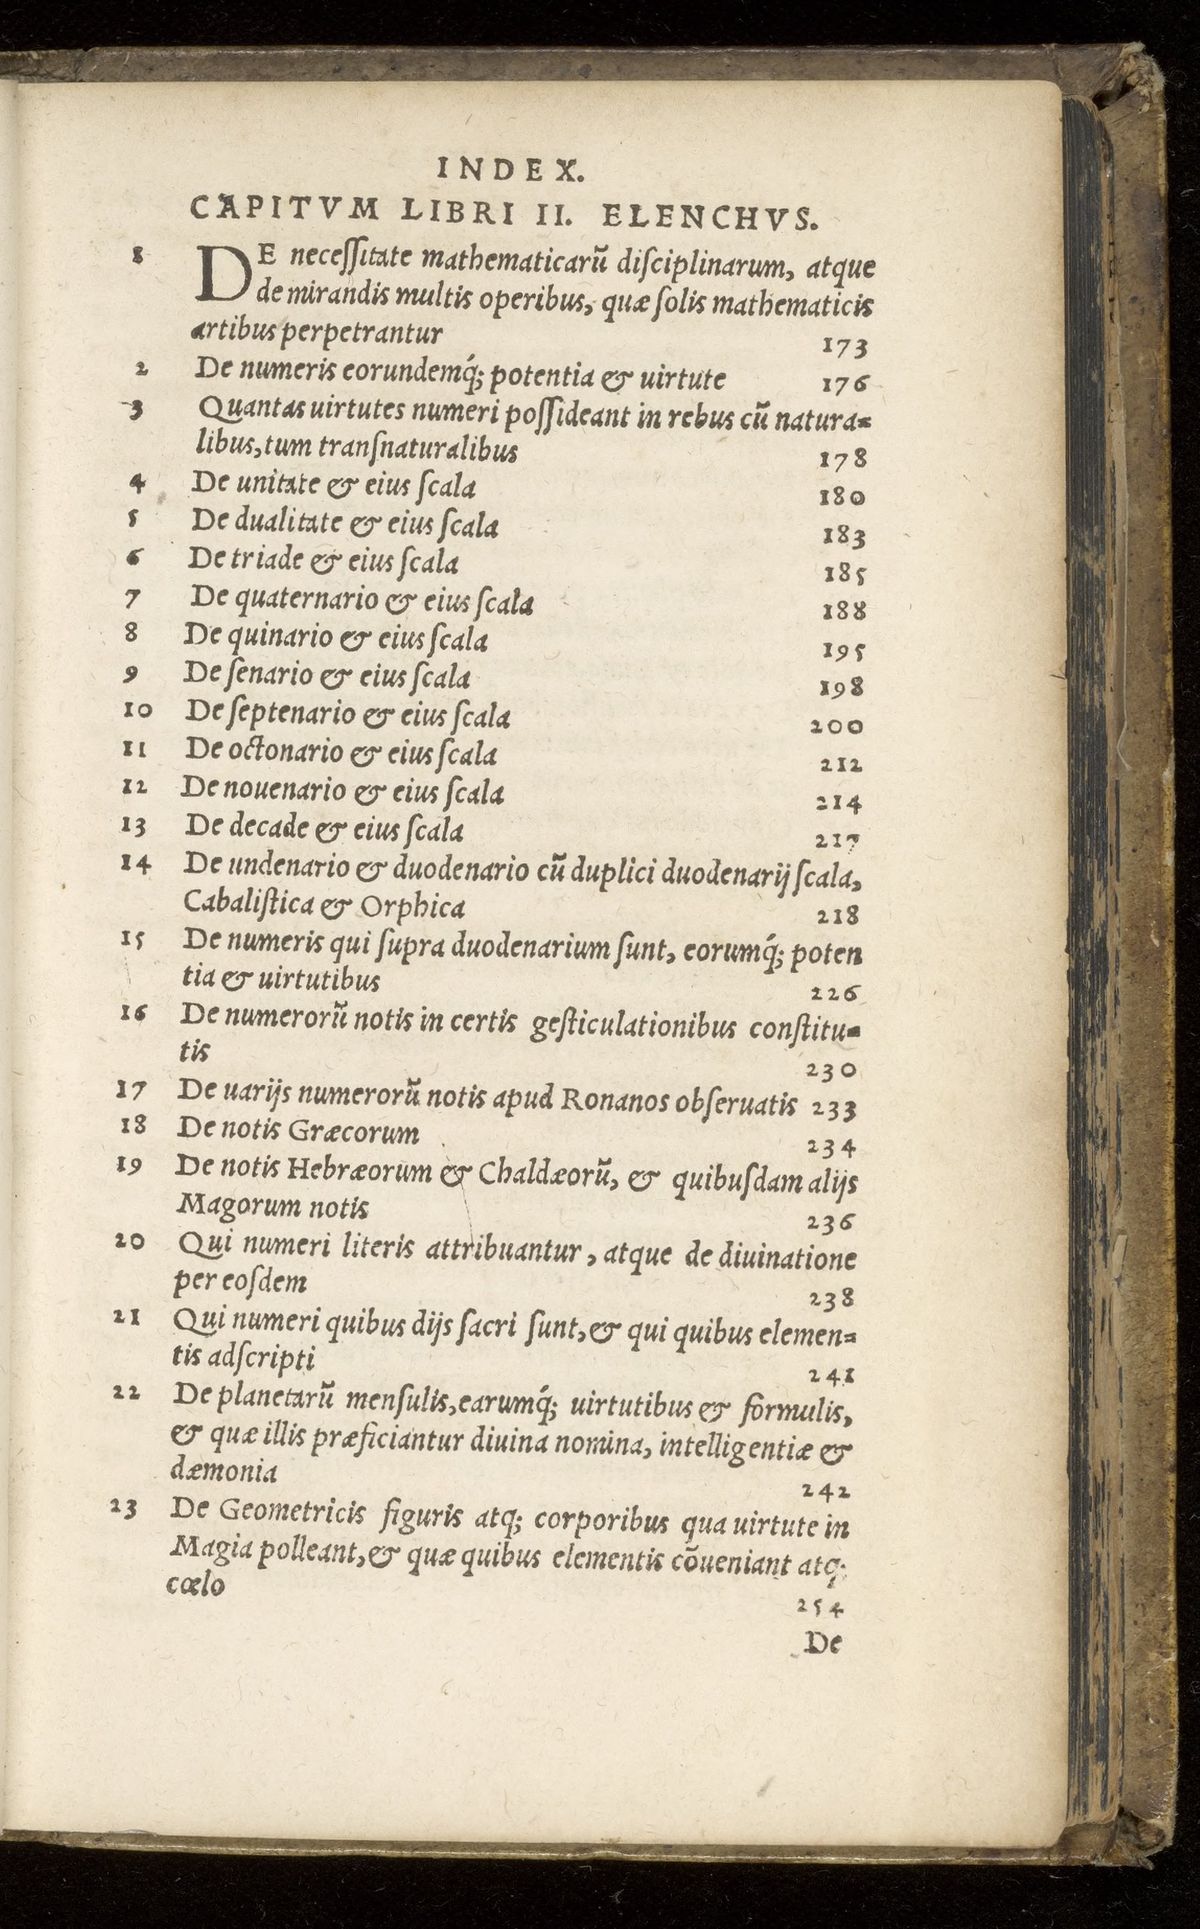 INDEX.
CAPITVM LIBRI II. ELENCHVS.
1 DE neceſſitate mathematicarũ diſciplinarum, atque
de mirandis multis operibus, quæ ſolis mathematicis
artibus perpetrantur 173
2 De numeris eorundemq́; potentia & uirtute 176
3 Quantas uirtutes numeri poſſideant in rebus cũ natura=
libus, tum tranſnaturalibus 178
4 De unitate & eius ſcala 180
5 De dualitate & eius ſcala 183
6 De triade & eius ſcala 185
7 De quaternario & eius ſcala 188
8 De quinario & eius ſcala 195
9 De ſenario & eius ſcala 198
10 De ſeptenario & eius ſcala 200
11 De octonario & eius ſcala 212
12 De nouenario & eius ſcala 214
13 De decade & eius ſcala 217
14 De undenario & duodenario cũ duplici duodenarij ſcala,
Cabaliſtica & Orphica 218
15 De numeris qui ſupra duodenarium ſunt, eorumq́; poten
tia & uirtutibus 226
16 De numerorũ notis in certis geſticulationibus conſtitu=
tis 230
17 De uarijs numerorũ notis apud Ronanos obſeruatis 233
18 De notis Græcorum 234
19 De notis Hebræorum & Chaldæorũ, & quibuſdam alijs
Magorum notis 236
20 Qui numeri literis attribuantur, atque de diuinatione
per eoſdem 238
21 Qui numeri quibus dijs ſacri ſunt, & qui quibus elemen=
tis adſcripti 241
22 De planetarũ menſulis, earumq́; uirtutibus & formulis,
& quæ illis præficiantur diuina nomina, intelligentiæ &
dæmonia 242
23 De Geometricis figuris atq; corporibus qua uirtute in
Magia polleant, & quæ quibus elementis cõueniant atq;
cœlo 254
De